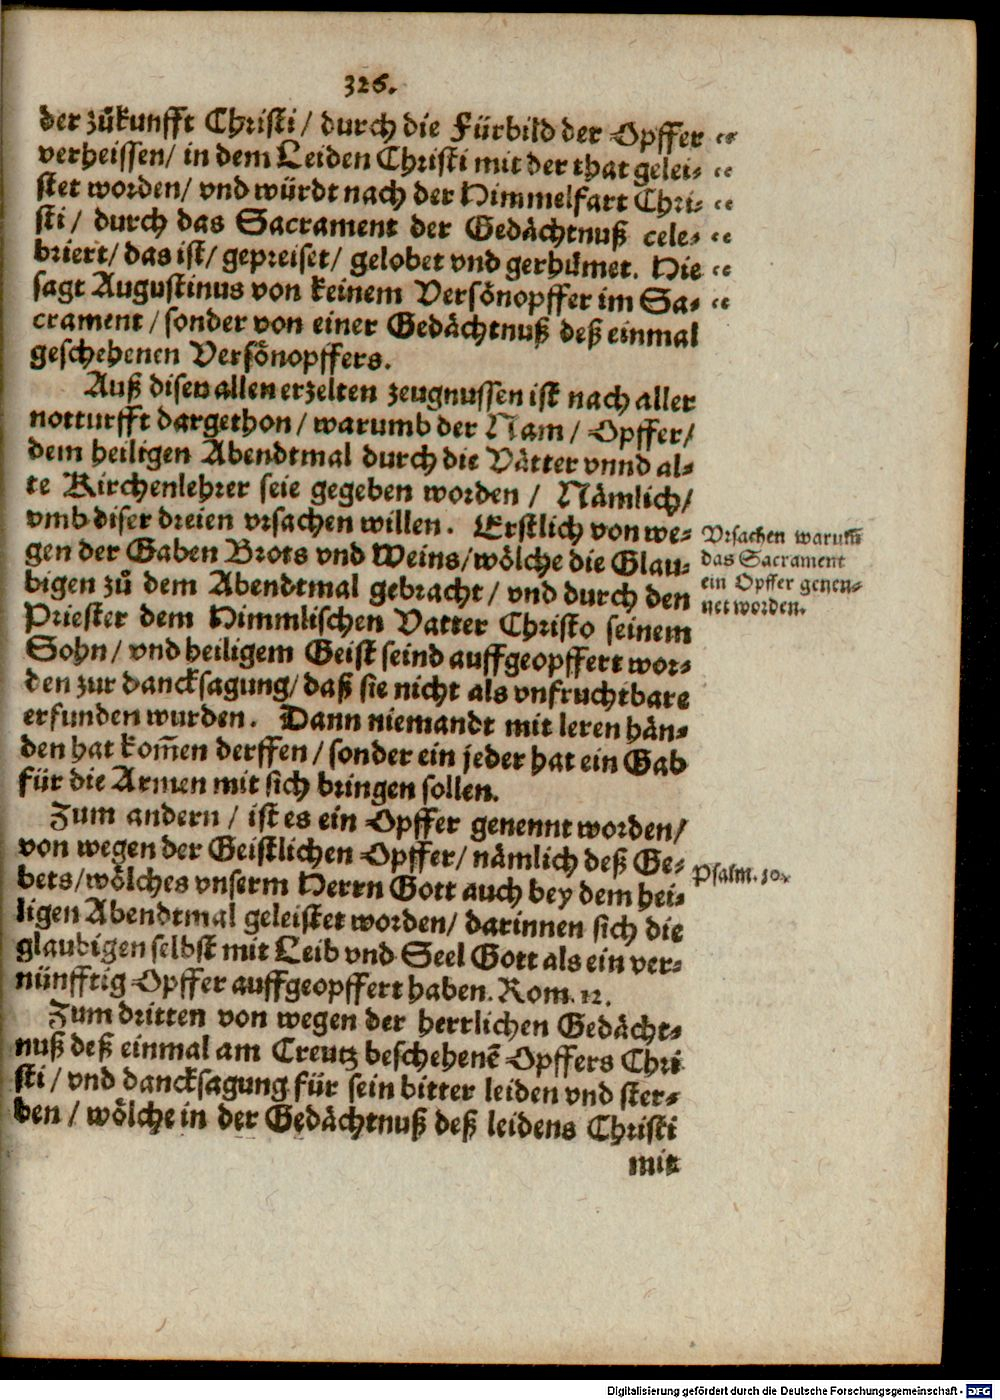 326.
der zůkunfft Christi / durch die Fürbild der Opffer "
verheissen / in dem Leiden Christi mit der that gelei- "
stet worden / vnd würdt nach der Himmelfart Chri- "
sti / durch das Sacrament der Gedächtnuß cele- "
briert / das ist / gepreiset / gelobet vnd gerhümet. Hie "
sagt Augustinus von keinem Versönopffer im Sa- "
crament / sonder von einer Gedächtnuß deß einmal
geschehenen Versönopffers.
Auß disen allen erzelten zeugnussen ist nach aller
notturfft dargethon / warumb der Nam / Opffer /
dem heiligen Abendtmal durch die Vätter vnnd al-
te Kirchenlehrer seie gegeben worden / Nämlich /
vmb diser dreien vrsachen willen. Erstlich von we-
gen der Gaben Brots vnd Weins / wölche die Glau-
bigen zů dem Abendtmal gebracht / vnd durch den
Priester dem Himmlischen Vatter Christo seinem
Sohn / vnd heiligem Geist seind auffgeopffert wor-
den zur dancksagung / daß sie nicht als vnfruchtbare
erfunden wurden. Dann niemandt mit leren hän-
den hat kom̃en derffen / sonder ein jeder hat ein Gab
für die Armen mit sich bringen sollen.
Vrsachen warum̃
das Sacrament
ein Opffer genen-
net worden.
Zum andern / ist es ein Opffer genennt worden /
von wegen der Geistlichen Opffer / nämlich deß Ge-
bets / wölches vnserm Herrn Gott auch bey dem hei-
ligen Abendtmal geleistet worden / darinnen sich die
glaubigen selbst mit Leib vnd Seel Gott als ein ver-
nünfftig Opffer auffgeopffert haben. Rom. 12.
Psalm.
Zum dritten von wegen der herrlichen Gedächt-
nuß deß einmal am Creutz beschehenẽ Opffers Chri
sti / vnd dancksagung für sein bitter leiden vnd ster-
ben / wölche in der Gedächtnuß deß leidens Christi
mit
Digitalisierung gefördert durch die Deutsche Forschungsgemeinschaft - DFG